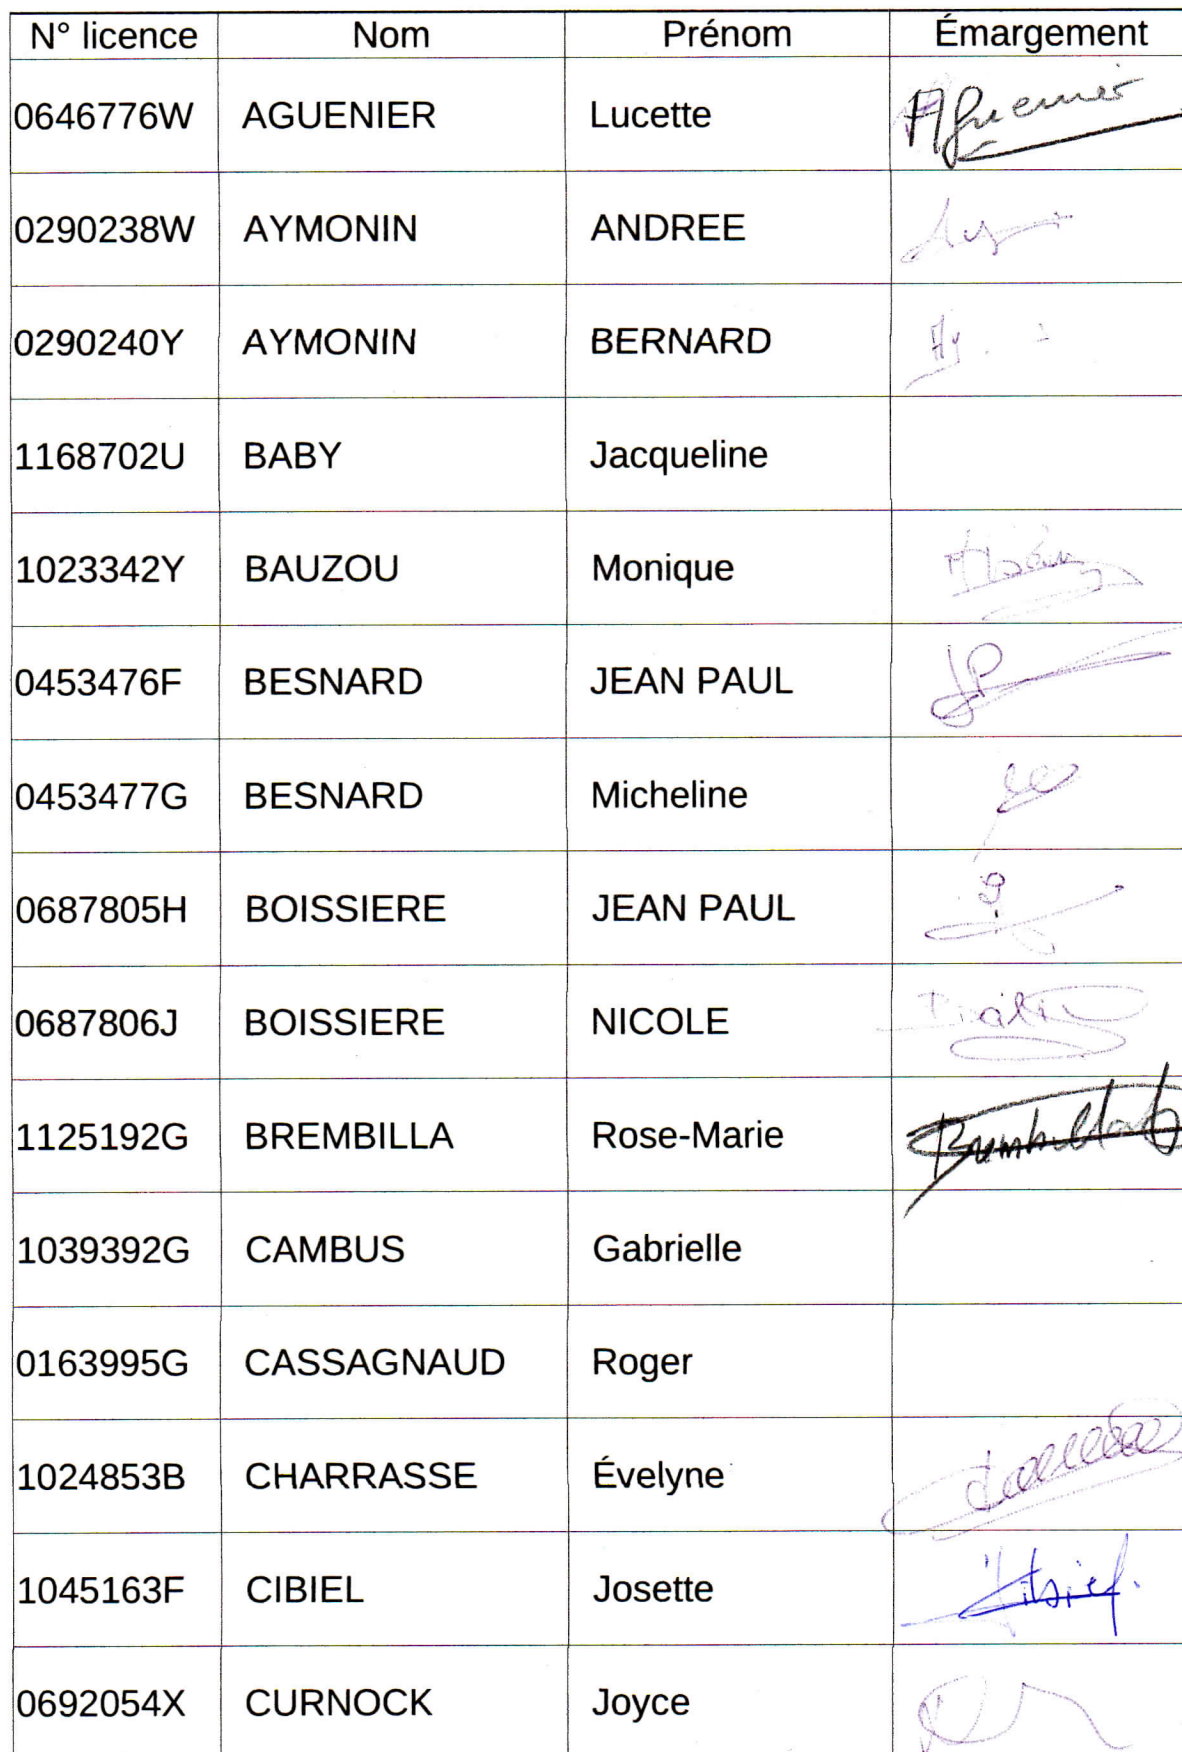 N° licence Nom Prénom Émargement
0646776W AGUENIER Lucette Aguenier
0290238W AYMONIN ANDREE
0290240Y AYMONIN BERNARD Ay.
1168702U BABY Jacqueline
1023342Y BAUZOU Monique
0453476F BESNARD JEAN PAUL JP
0453477G BESNARD Micheline
0687805H BOISSIERE JEAN PAUL
0687806J BOISSIERE NICOLE
1125192G BREMBILLA Rose-Marie
1039392G CAMBUS Gabrielle
0163995G CASSAGNAUD Roger
1024853B CHARRASSE Évelyne
1045163F CIBIEL Josette
0692054X CURNOCK Joyce